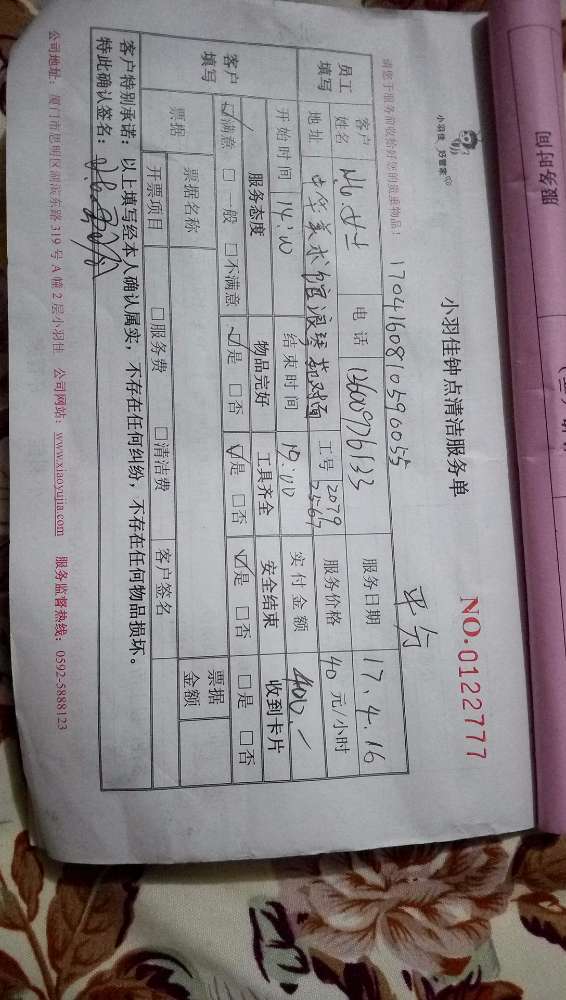 服务时间
小羽佳 好管家
小羽佳钟点清洁服务单
NO. 0122777
请您于服务前收拾好您的贵重物品!
1704160810596055
平分
员工填写
客户姓名
电话
服务日期 17.4.16
地址 中华美术馆
对面
工号 2079
2567
服务价格 40元/小时
开始时间 14:00
结束时间 19:00
实付金额 400.-
客户填写
服务态度 物品完好 工具齐全 安全结束 收到卡片
☑满意 □一般 □不满意 ☑是 □否 ☑是 □否 ☑是 □否 □是 □否
票据
票据名称
客户签名
票据金额
开票项目 □服务费 □清洁费
客户特别承诺:以上填写经本人确认属实,不存在任何纠纷,不存在任何物品损坏。
特此确认签名:
公司地址:厦门市思明区湖滨东路319号A幢2层小羽佳 公司网站:www.xiaoyujia.com 服务监督热线:0592-5888123